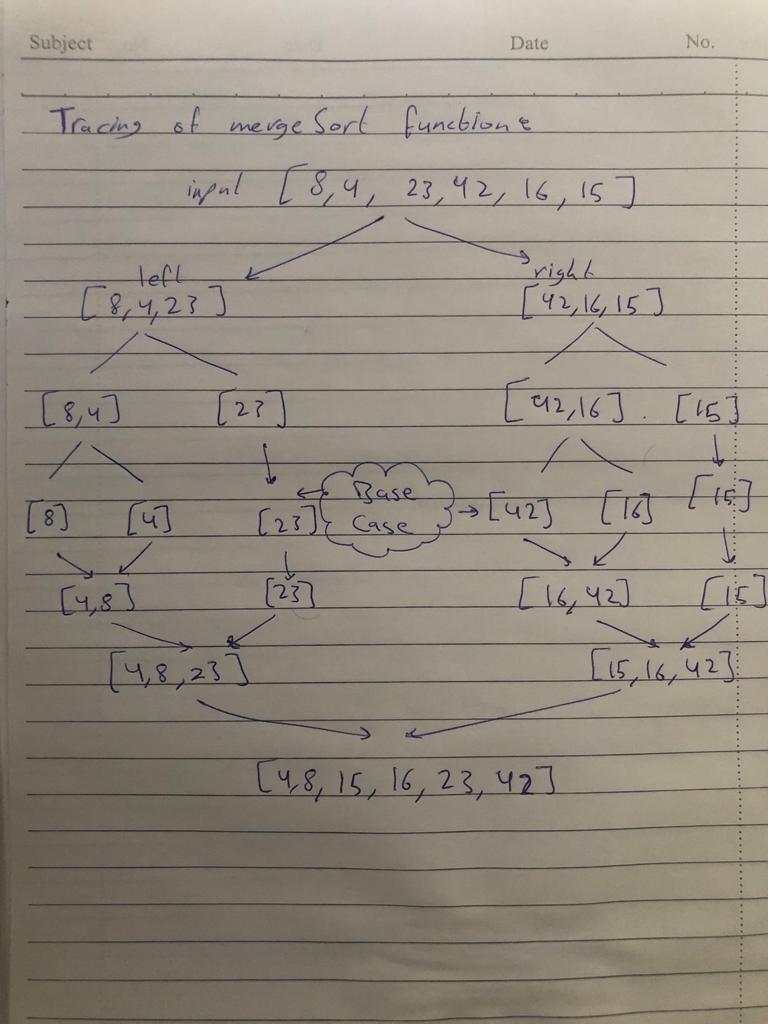 Subject Date No.
Tracing of mergeSort functione
input [8,4, 23,42, 16, 15]
left right
[8,4,23] [42,16,15]
[8,4] [23] [42,16] . [15]
Base
Case
[8] [4] [23] [42] [16] [15]
[4,8] [23] [16,42] [15]
[4,8,23] [15,16,42]
[4,8,15,16,23,42]